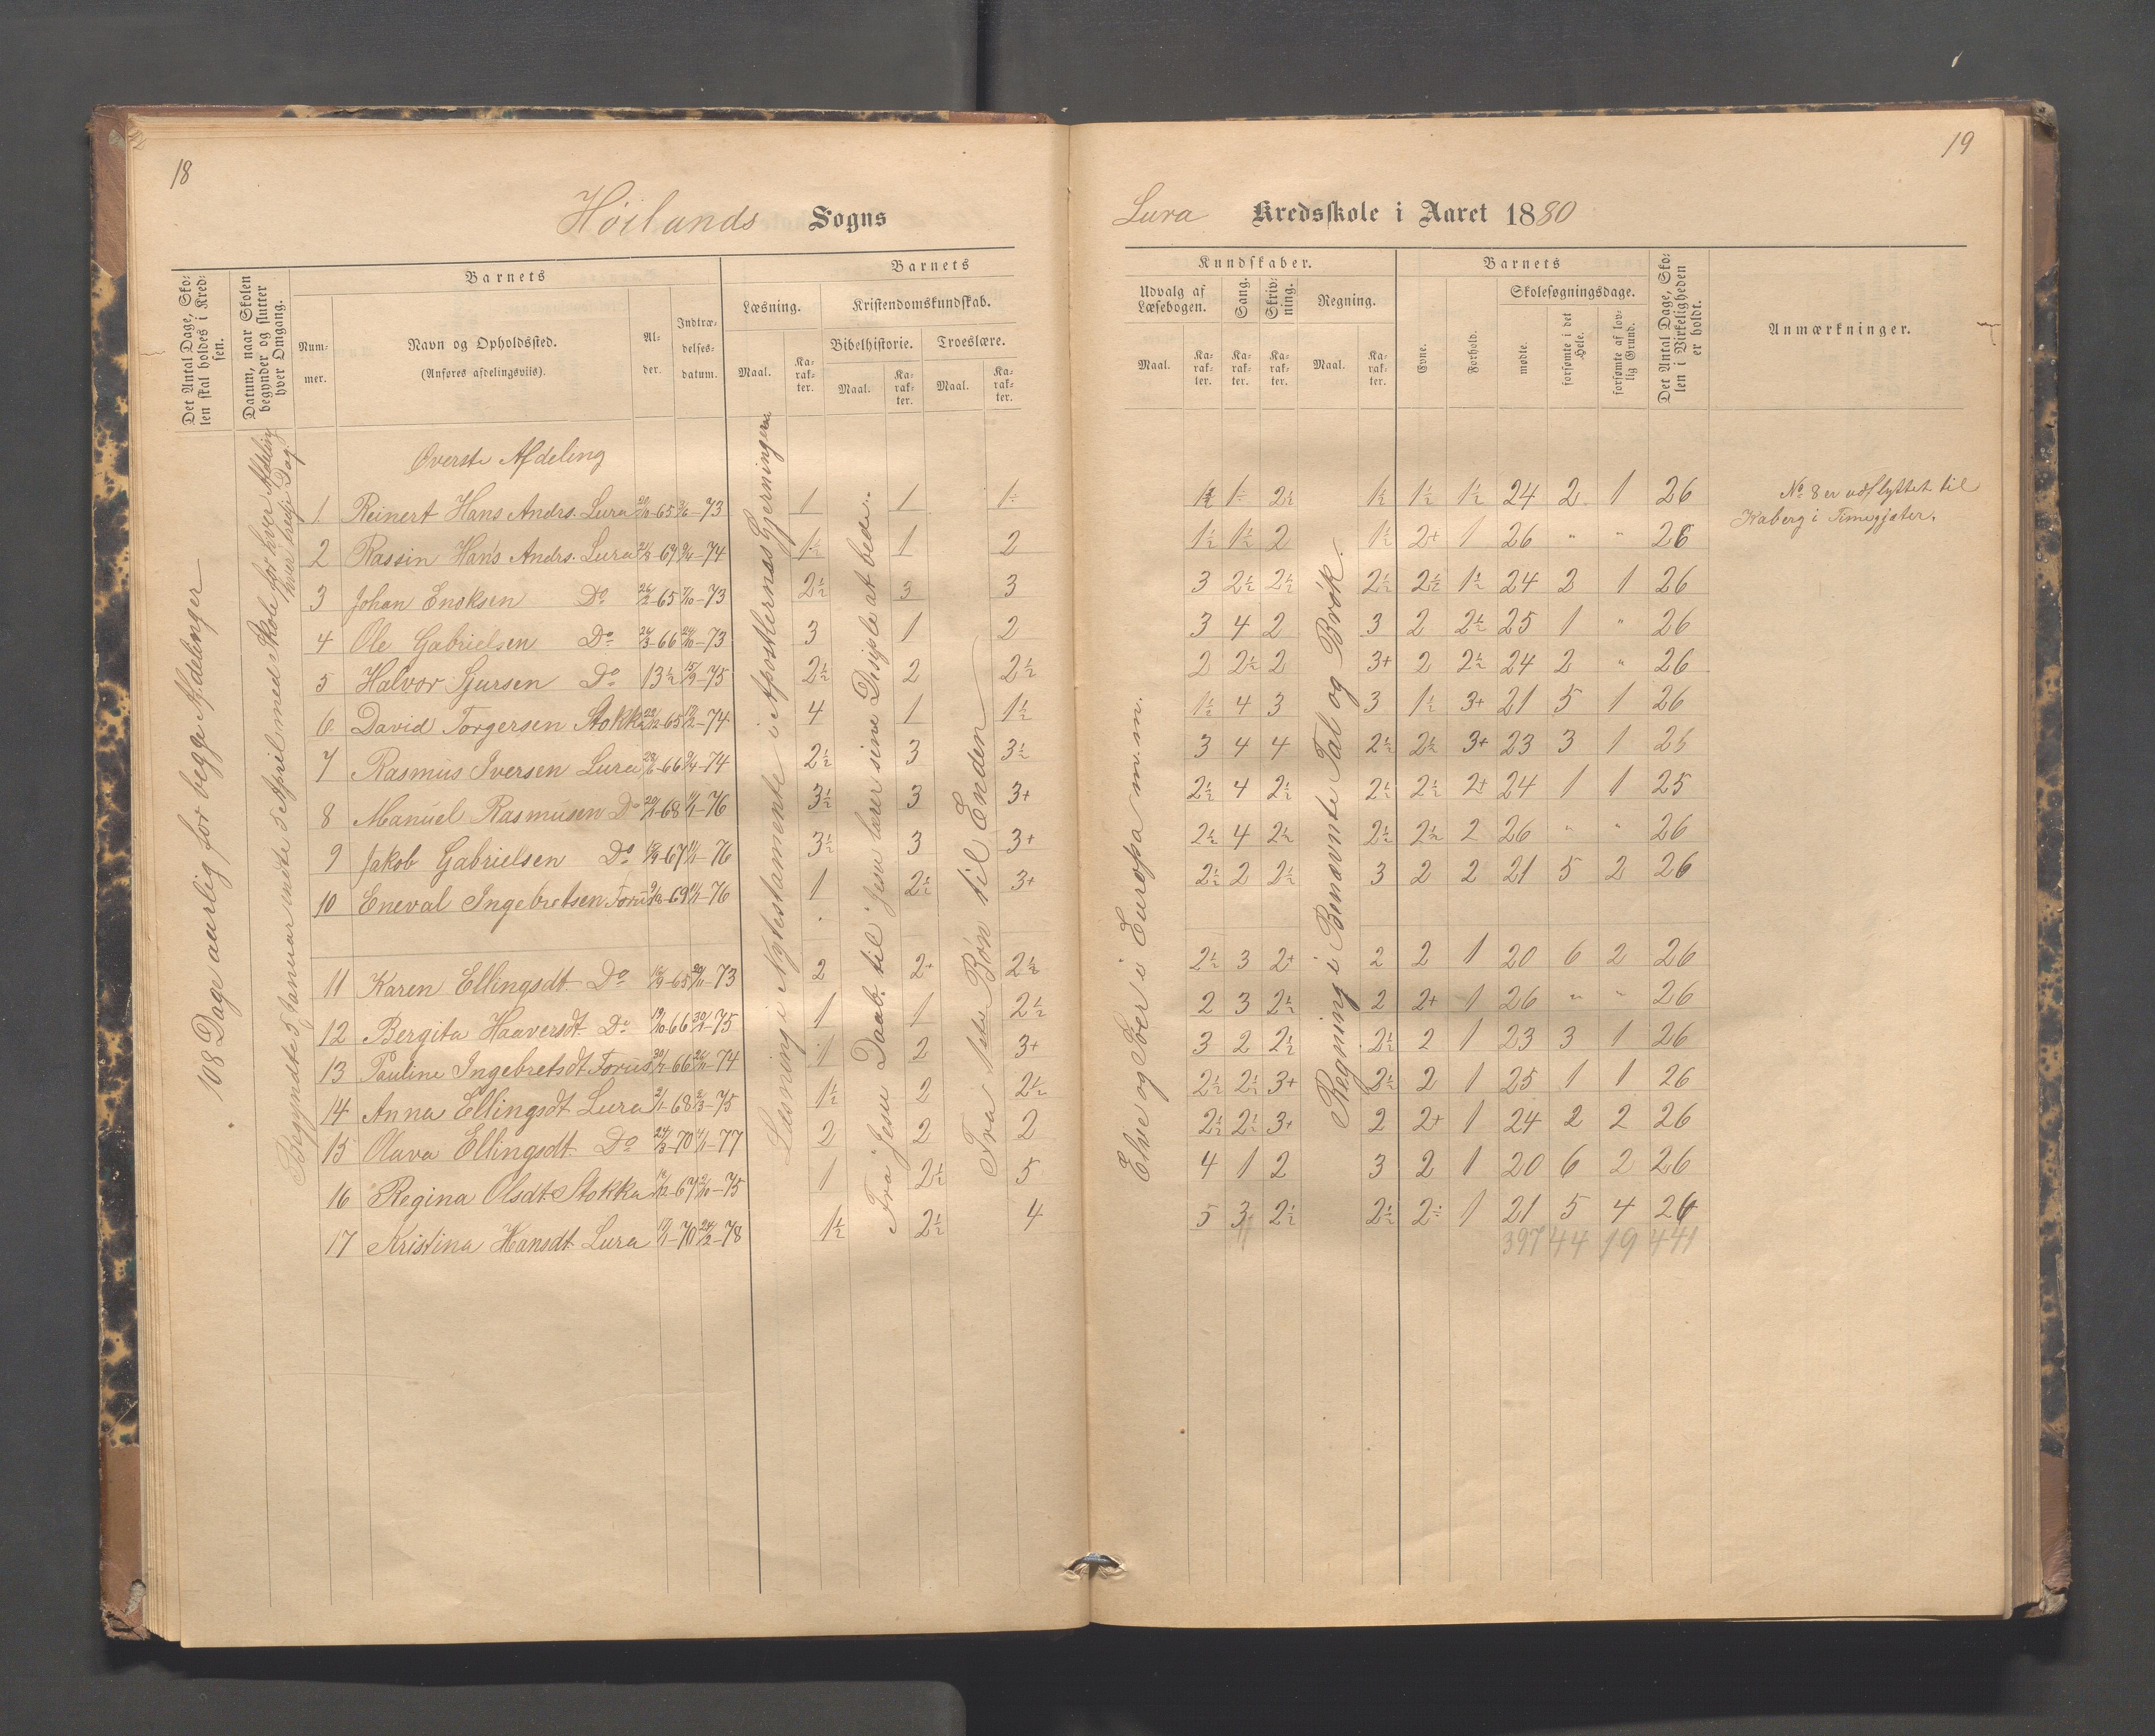 18
Høilands Sogns
Det Antal Dage, Skolen skal holdes i Kredsen.
Datum, naar Skolen begynder og slutter hver Omgang.
Barnets
Nummer.
Navn og Opholdssted.
(Anføres afdelingsviis).
Alder.
Indtrædelsesdatum.
Barnets
Læsning.
Kristendomskundskab.
Bibelhistorie.
Troeslære.
Maal.
Karakter.
Maal.
Karakter.
Maal.
Karakter.
108 Dage aarlig for begge Afdelinger
Begyndte 5 Januar endte 3 April med Skole for hver Afdeling
hver tredje Dag
Læsning i Nytestammente i Apostlernes Gjerninger
Fra Jesu Daab til Jesu lærer sine Disiple at bede.
Fra Bøn til Enden
Øverste Afdeling
1 Reinert Hans Andrs. Lura 65 73 1 1 1÷
2 Rassin Hans Andrs. Lura 74 1½ 1 2
3 Johan Enoksen Do 26/2-65 7/10-73 2½ 3 3
4 Ole Gabrielsen Do 26/3-66 73 3 1 2
5 Halvor Sjursen Do 13½ 75 2½ 2 2½
6 David Torgersen Stokka 65 74 4 1 1½
7 Rasmus Iversen Lura 66 74 2½ 3 3½
8 Manuel Rasmusen Do 68 76 3½ 3 3+
9 Jakob Gabrielsen Do 67 76 3½ 3 3+
10 Eneval Ingebretsen Forus 69 76 1 2½ 3+
11 Karen Ellingsdt Do 65 73 2 2+ 2½
12 Bergita Haaversdt Do 19/10-66 75 1 1 2½
13 Pauline Ingebretsdt Forus 66 74 1 2 3+
14 Anna Ellingsdt Lura 68 75 1½ 2 2½
15 Olava Ellingsdt Do 24/3-70 77 2 2 2
16 Regina Olsdt Stokka 67 75 1 2½ 5
17 Kristina Hansdt Lura 70 24/2-78 1½ 2½ 4
19
Lura Kredsskole i Aaret 1880
Kundskaber.
Udvalg af Læsebogen.
Sang.
Skrivning.
Regning.
Maal.
Karakter.
Karakter.
Karakter.
Maal.
Karakter.
Barnets
Evne.
Forhold.
Skolesøgningsdage.
mødte.
forsømte i det Hele.
forsømte af lovlig Grund.
Det Antal Dage, Skolen i Virkeligheden er holdt.
Anmærkninger.
Elve og Søer i Europa m.m.
Regning i Benævnte Tal og Brøk.
1÷ 2½ 1½ 1½ 1½ 24 2 1 26
1½ 1½ 2 1½ 2+ 1 26 " " 26
3 2½ 2½ 2½ 2½ 1½ 24 2 1 26
3 4 2 3 2 2½ 25 1 " 26
2 2½ 2 3+ 2 2½ 24 2 " 26
1½ 4 3 3 1½ 3+ 21 5 1 26
3 4 4 2½ 2½ 3+ 23 3 1 26
2½ 4 2½ 2½ 2½ 2+ 24 1 1 25
2½ 4 2½ 2½ 2½ 2 26 " " 26
2½ 2 2½ 3 2 2 21 5 2 26
2½ 3 2+ 2 2 1 20 6 2 26
2 3 2½ 2 2+ 1 26 " " 26
3 2 2½ 2½ 2 1 23 3 1 26
2½ 2½ 3+ 2½ 2 1 25 1 1 26
2½ 2½ 3+ 2 2+ 1 24 2 2 26
4 1 2 3 2 1 20 6 2 26
5 3 2½ 2½ 2÷ 1 21 5 4 26
397 44 19 441
No 8 er udflyttet til
Kaberg i Timegjæter.